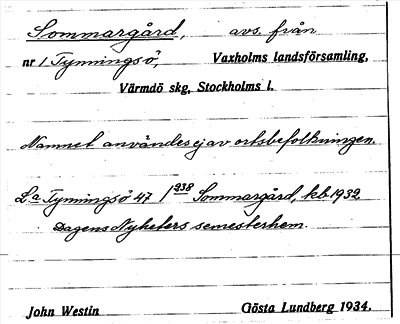 Sommargård, avs. från
nr 1 Tynningsö, Vaxholms landsförsamling,
Värmdö skg, Stockholms l.
Namnet användes ej av ortsbefolkningen.
La Tynningsö 47 / 238 Sommargård, kb. 1932
Dagens Nyheters semesterhem.
John Westin Gösta Lundberg 1934.